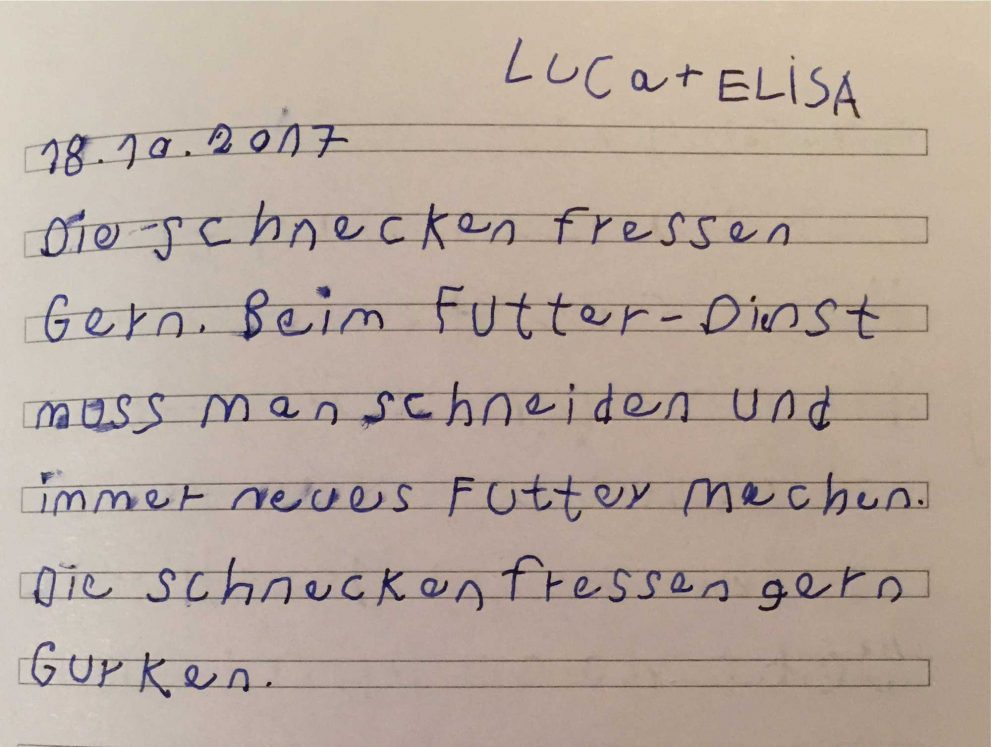 LUCa + ELiSA
18.10.2017
Die schnecken fressen
Gern. Beim Futter-Dinst
muss man schneiden und
immer neues Futter machen.
Die schnecken fressen gern
Gurken.